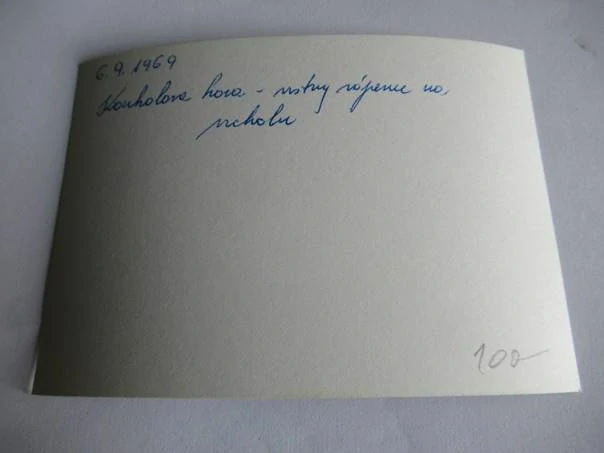 6.9.1969
Kouholova hora - vstvy vápence na
vrcholu
100